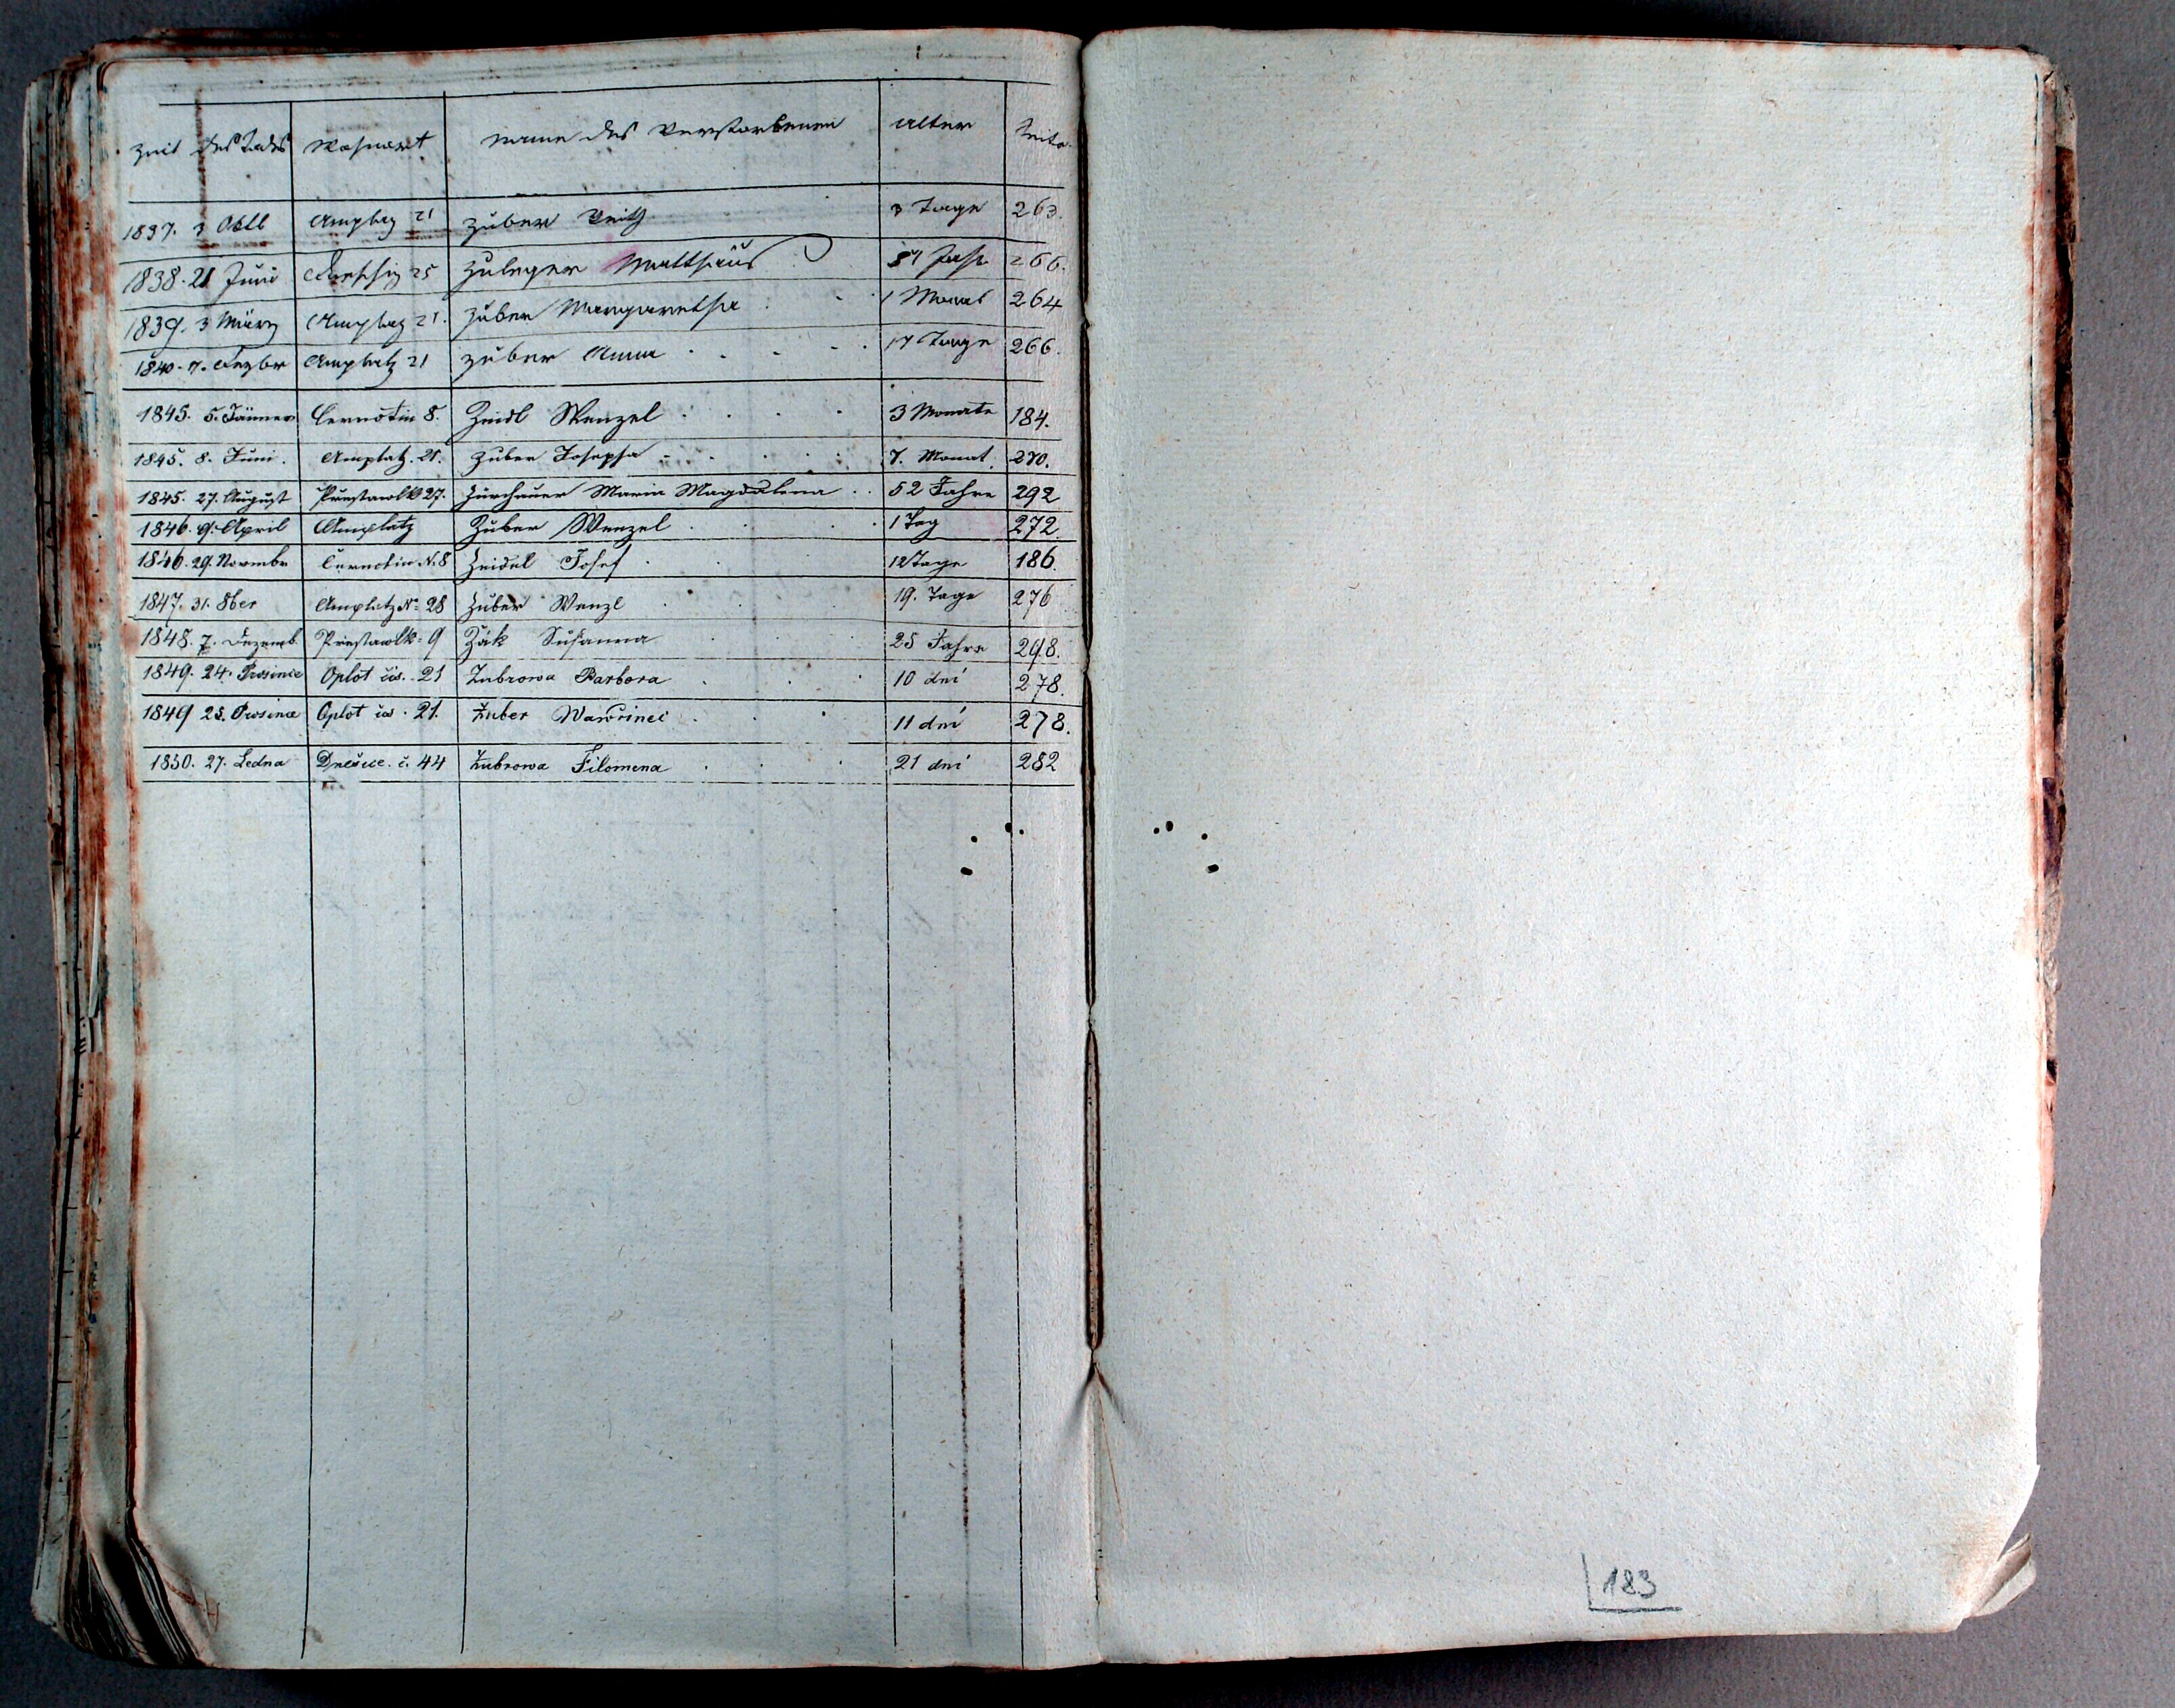 Zeit des Todes Wohnort Name des Verstorbenen Alter Seite
1837. 3 Amplatz 21 Zuber Veith 3 Tage 263.
1838. 21 Juni 25 Zuleger Matthäus Jahr 266.
1839. 3 März Amplatz 21. Zuber Margaretha 1 Monat 264
1840. 7. Dezbr Amplatz 21 Zuber Anna 17 Tage 266.
1845. 5. Jänner Černotin 8. Zeidl Wenzel 3 Monate 184.
1845. 8. Juni. Amplatz. 21. Zuber Josepha 7. Monat 270.
1845. 27. August Przestawlk 27. Zürchauer Maria Magdalena 52 Jahre 292
1846. 9. April Amplatz Zuber Wenzel 1 Tag 272.
1846. 29. Novembr Černotin N. 8 Zeidel Josef 12 Tage 186.
1847. 31. 8ber Amplatz N: 28 Zuber Wenzl 19. Tage 276
1848. 7. Dezemb. Przestawlk 9 Žák Susanna 25 Jahre 298.
1849. 24. Prosince Oplot čis. 21 Zubrowa Barbora 10 dní 278.
1849 25. Prosince Oplot čis. 21. Zuber Wawřinec 11 dní 278.
1850. 27. Ledna Dnešice. č. 44 Zubrowa Filomena 21 dní 282
183